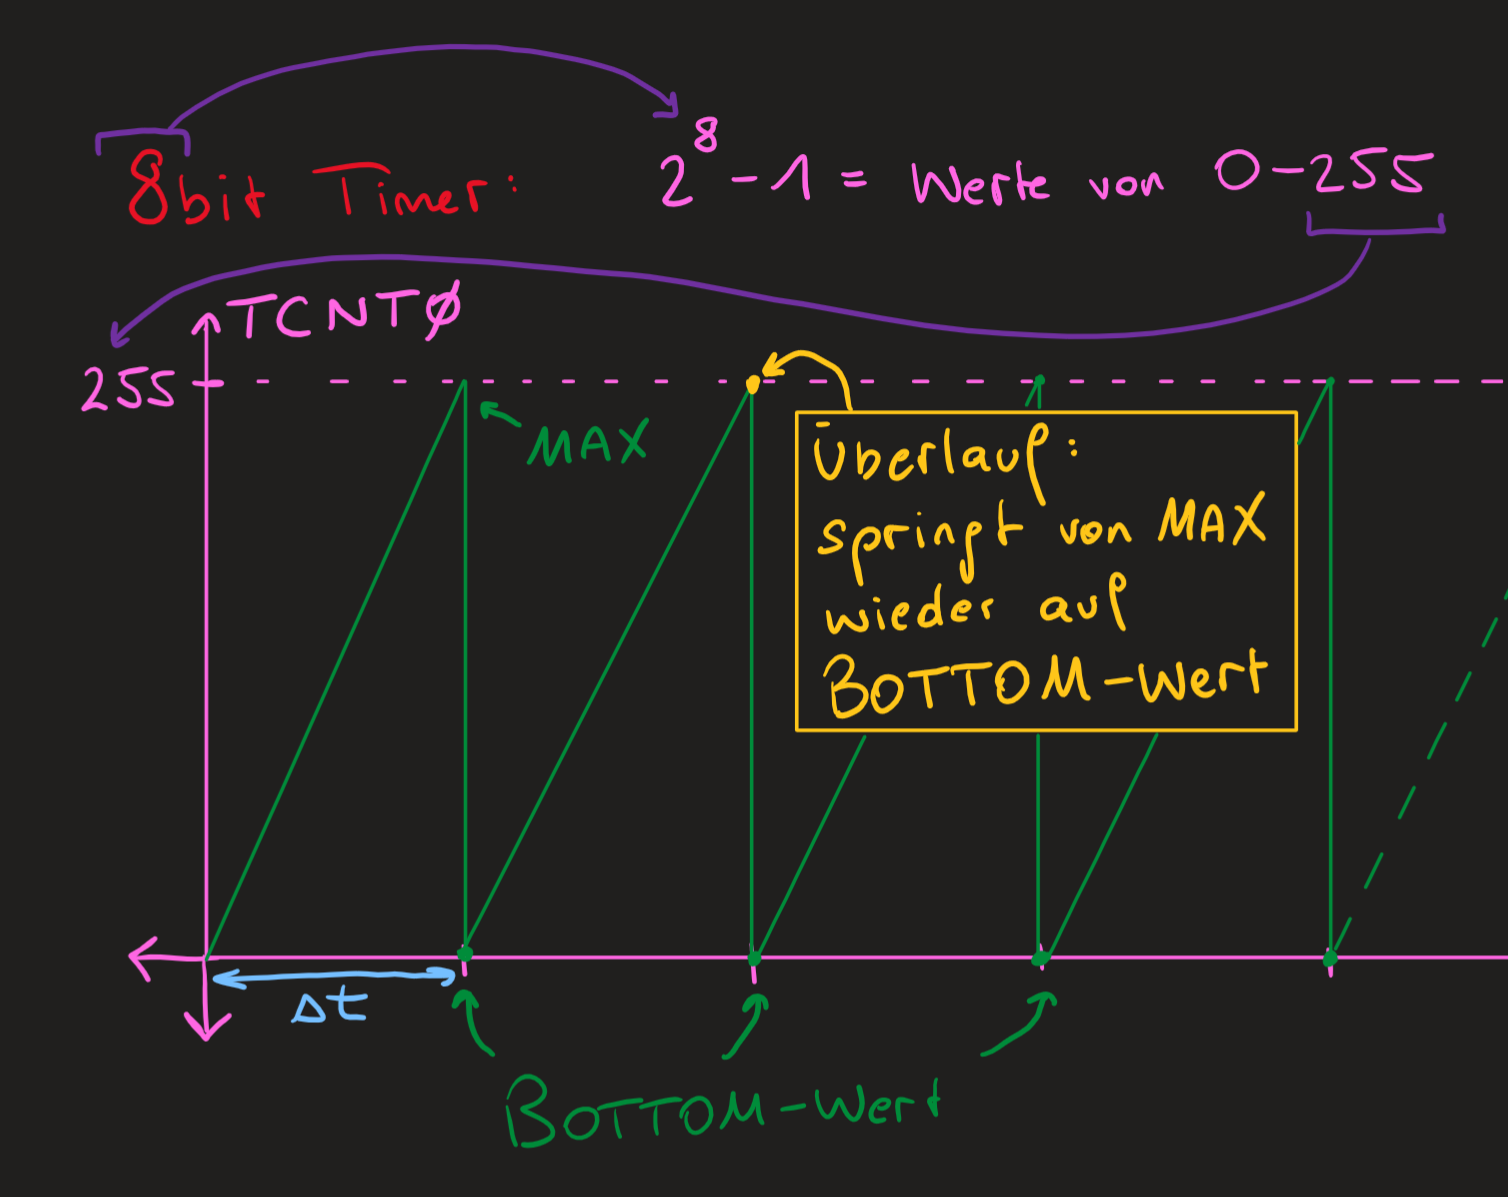 8bit Timer: 2⁸ - 1 = Werte von 0-255
TCNTØ
255
MAX
Überlauf:
springt von MAX
wieder auf
BOTTOM-Wert
Δt
BOTTOM-Wert